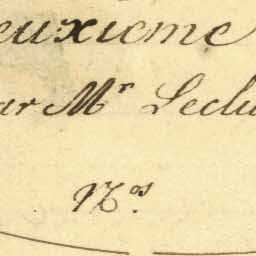 euxieme
ar Mr Leclu
N.os